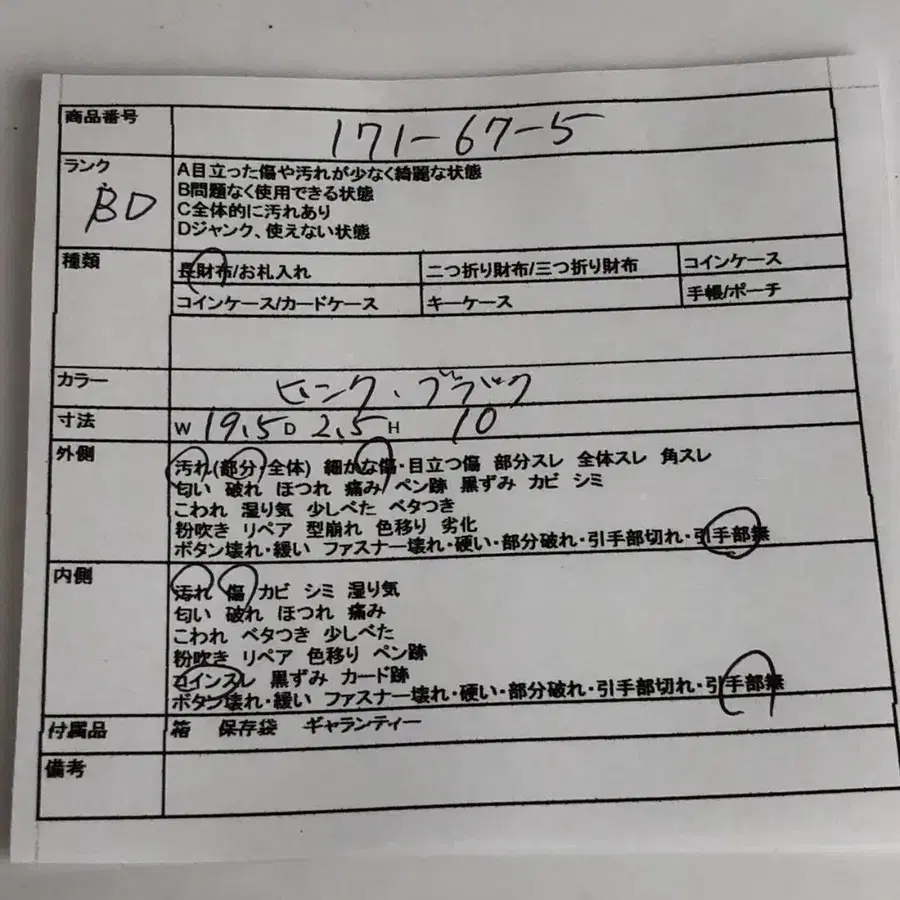 商品番号 171-67-5
ランク BD
A目立った傷や汚れが少なく綺麗な状態
B問題なく使用できる状態
C全体的に汚れあり
Dジャンク、使えない状態
種類 長財布/お札入れ 二つ折り財布/三つ折り財布 コインケース
コインケース/カードケース キーケース 手帳/ポーチ
カラー ピンク・ブラック
寸法 W 19.5 D 2.5 H 10
外側 汚れ(部分・全体) 細かな傷・目立つ傷 部分スレ 全体スレ 角スレ
匂い 破れ ほつれ 痛み ペン跡 黒ずみ カビ シミ
こわれ 湿り気 少しべた ベタつき
粉吹き リペア 型崩れ 色移り 劣化
ボタン壊れ・緩い ファスナー壊れ・硬い・部分破れ・引手部切れ・引手部無
内側 汚れ 傷 カビ シミ 湿り気
匂い 破れ ほつれ 痛み
こわれ ベタつき 少しべた
粉吹き リペア 色移り ペン跡
コインスレ 黒ずみ カード跡
ボタン壊れ・緩い ファスナー壊れ・硬い・部分破れ・引手部切れ・引手部無
付属品 箱 保存袋 ギャランティー
備考